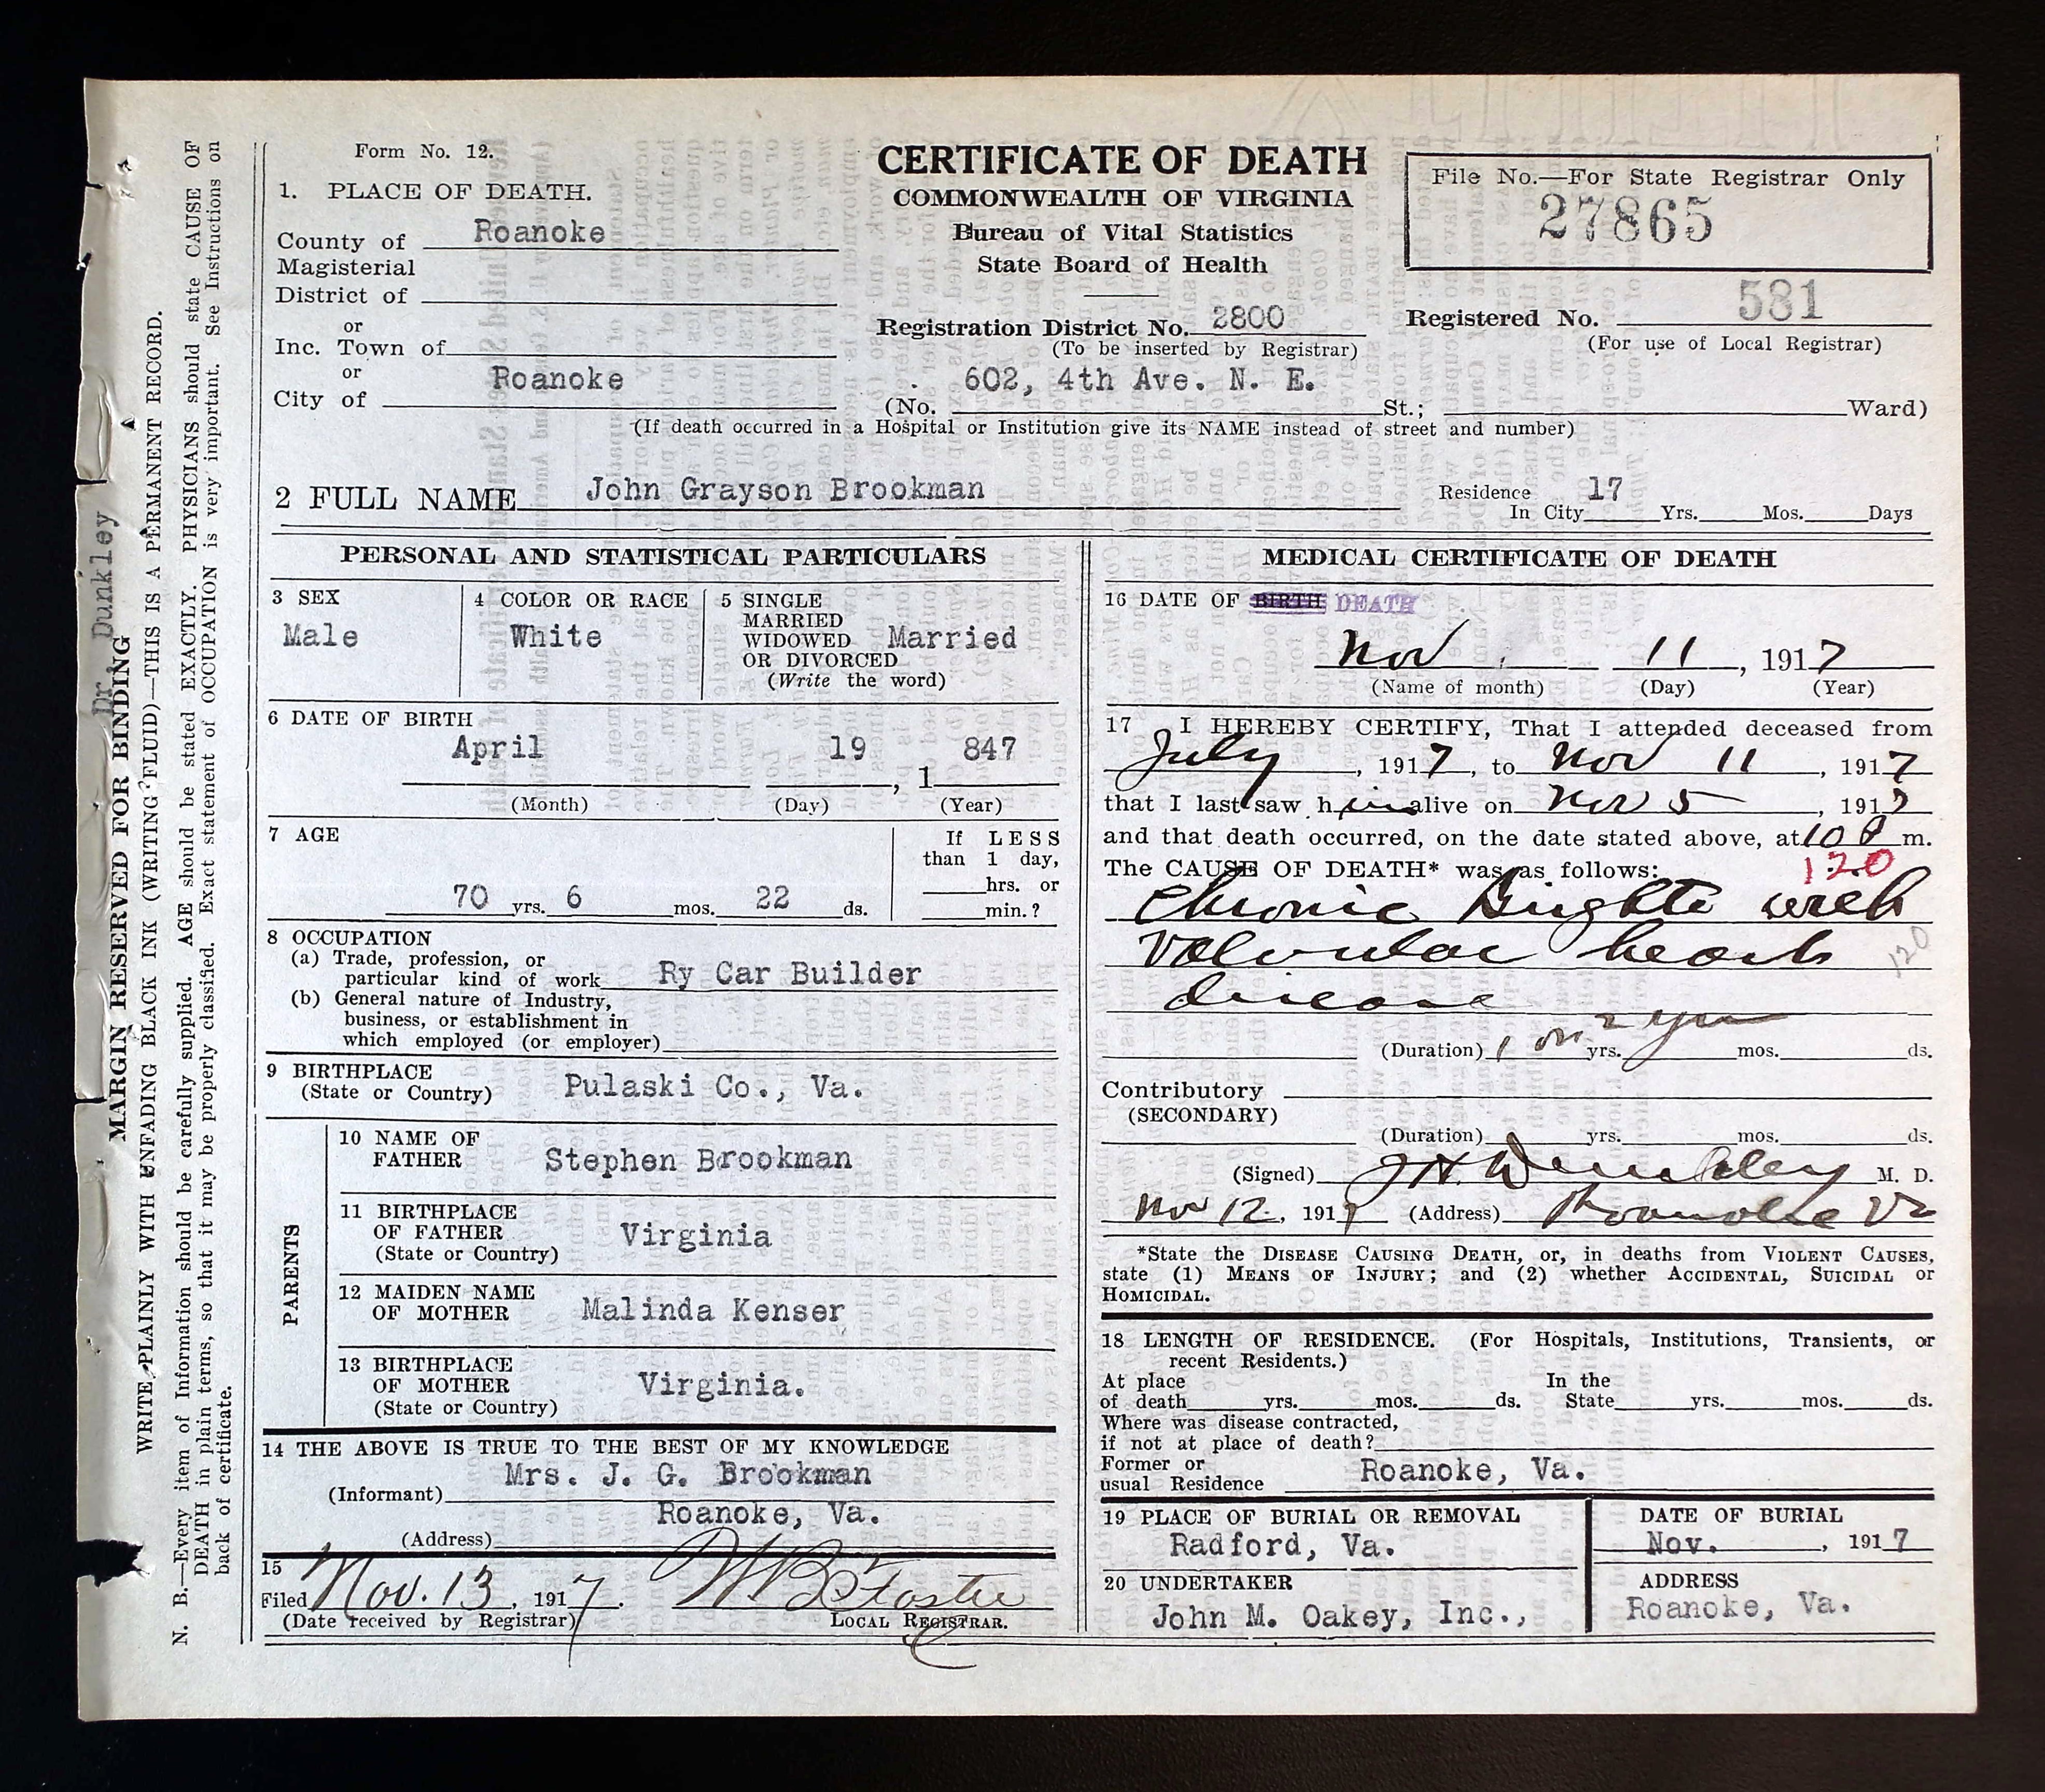 Form No. 12.
1. PLACE OF DEATH.
County of Roanoke
Magisterial
District of
or
Inc. Town of
or
City of Roanoke
CERTIFICATE OF DEATH
COMMONWEALTH OF VIRGINIA
Bureau of Vital Statistics
State Board of Health
Registration District No. 2800
(To be inserted by Registrar)
602, 4th Ave. N. E.
(No. St.; Ward)
(If death occurred in a Hospital or Institution give its NAME instead of street and number)
File No.—For State Registrar Only
27865
Registered No. 581
(For use of Local Registrar)
2 FULL NAME John Grayson Brookman
Residence 17
In City Yrs. Mos. Days
PERSONAL AND STATISTICAL PARTICULARS
3 SEX
Male
4 COLOR OR RACE
White
5 SINGLE
MARRIED
WIDOWED Married
OR DIVORCED
(Write the word)
6 DATE OF BIRTH
April 19 , 1 847
(Month) (Day) (Year)
7 AGE
70 yrs. 6 mos. 22 ds.
If LESS
than 1 day,
hrs. or
min.?
8 OCCUPATION
(a) Trade, profession, or
particular kind of work Ry Car Builder
(b) General nature of Industry,
business, or establishment in
which employed (or employer)
9 BIRTHPLACE
(State or Country) Pulaski Co., Va.
PARENTS
10 NAME OF
FATHER Stephen Brookman
11 BIRTHPLACE
OF FATHER Virginia
(State or Country)
12 MAIDEN NAME
OF MOTHER Malinda Kenser
13 BIRTHPLACE
OF MOTHER Virginia.
(State or Country)
14 THE ABOVE IS TRUE TO THE BEST OF MY KNOWLEDGE
(Informant) Mrs. J. G. Brookman
(Address) Roanoke, Va.
15
Filed Nov. 13, 1917. W B Foster
(Date received by Registrar) LOCAL REGISTRAR.
MEDICAL CERTIFICATE OF DEATH
16 DATE OF BIRTH DEATH
Nov. 11, 1917
(Name of month) (Day) (Year)
17 I HEREBY CERTIFY, That I attended deceased from
July, 1917, to Nov 11, 1917
that I last saw him alive on Nov 5, 1917
and that death occurred, on the date stated above, at 10 P m.
The CAUSE OF DEATH* was as follows: 120
Chronic Brights with
Valvular heart 120
disease
(Duration) 1 or 2 yrs yrs. mos. ds.
Contributory
(SECONDARY)
(Duration) yrs. mos. ds.
(Signed) J H. Dunkley M. D.
Nov 12, 1917 (Address) Roanoke Va
*State the DISEASE CAUSING DEATH, or, in deaths from VIOLENT CAUSES,
state (1) MEANS OF INJURY; and (2) whether ACCIDENTAL, SUICIDAL or
HOMICIDAL.
18 LENGTH OF RESIDENCE. (For Hospitals, Institutions, Transients, or
recent Residents.)
At place In the
of death yrs. mos. ds. State yrs. mos. ds.
Where was disease contracted,
if not at place of death?
Former or
usual Residence Roanoke, Va.
19 PLACE OF BURIAL OR REMOVAL
Radford, Va.
DATE OF BURIAL
Nov. , 1917
20 UNDERTAKER
John M. Oakey, Inc.,
ADDRESS
Roanoke, Va.
Dr. Dunkley
MARGIN RESERVED FOR BINDING
WRITE PLAINLY WITH UNFADING BLACK INK (WRITING FLUID)—THIS IS A PERMANENT RECORD.
N. B.—Every item of Information should be carefully supplied. AGE should be stated EXACTLY. PHYSICIANS should state CAUSE OF
DEATH in plain terms, so that it may be properly classified. Exact statement of OCCUPATION is very important. See Instructions on
back of certificate.